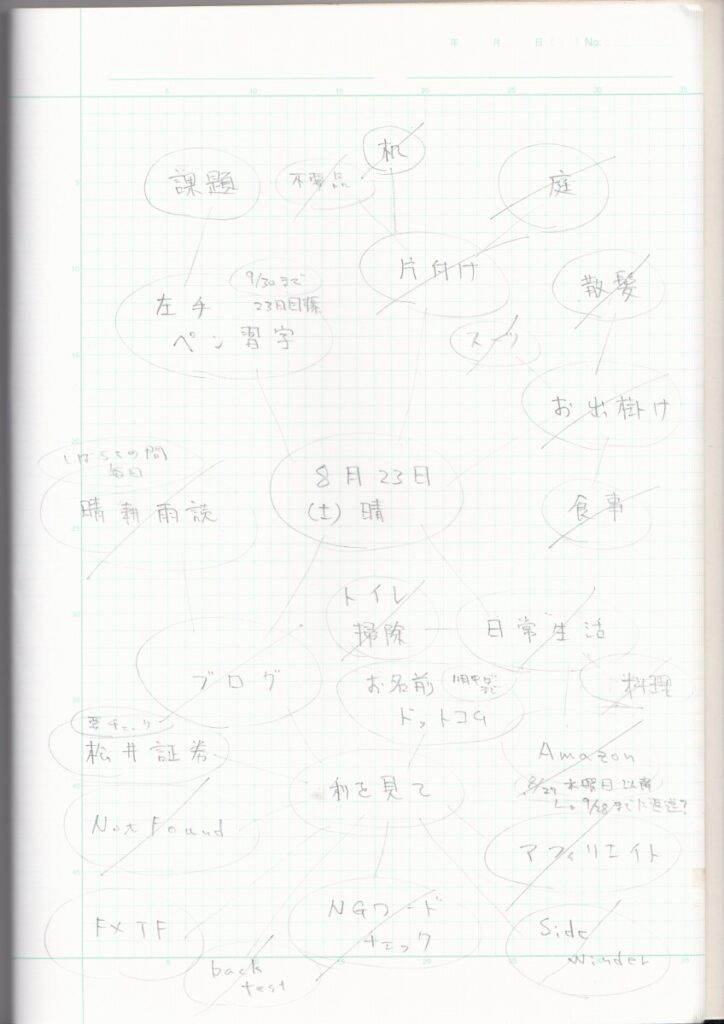 年 月 日( ) No.
机
課題
不要品
庭
片付け
9/30まで
23日目標
左手
ペン習字
散髪
スーツ
お出掛け
しばらくの間
毎日
8月23日
(土) 晴
晴耕雨読
食事
トイレ
掃除
日常生活
ブログ
お名前
ドットコム
料理
要チェック
松井証券
利を見て
Amazon
8/27 水曜日以降
9/28までに返送?
Not Found
アフィリエイト
FXTF
NGワード
チェック
Side
Winder
back
test